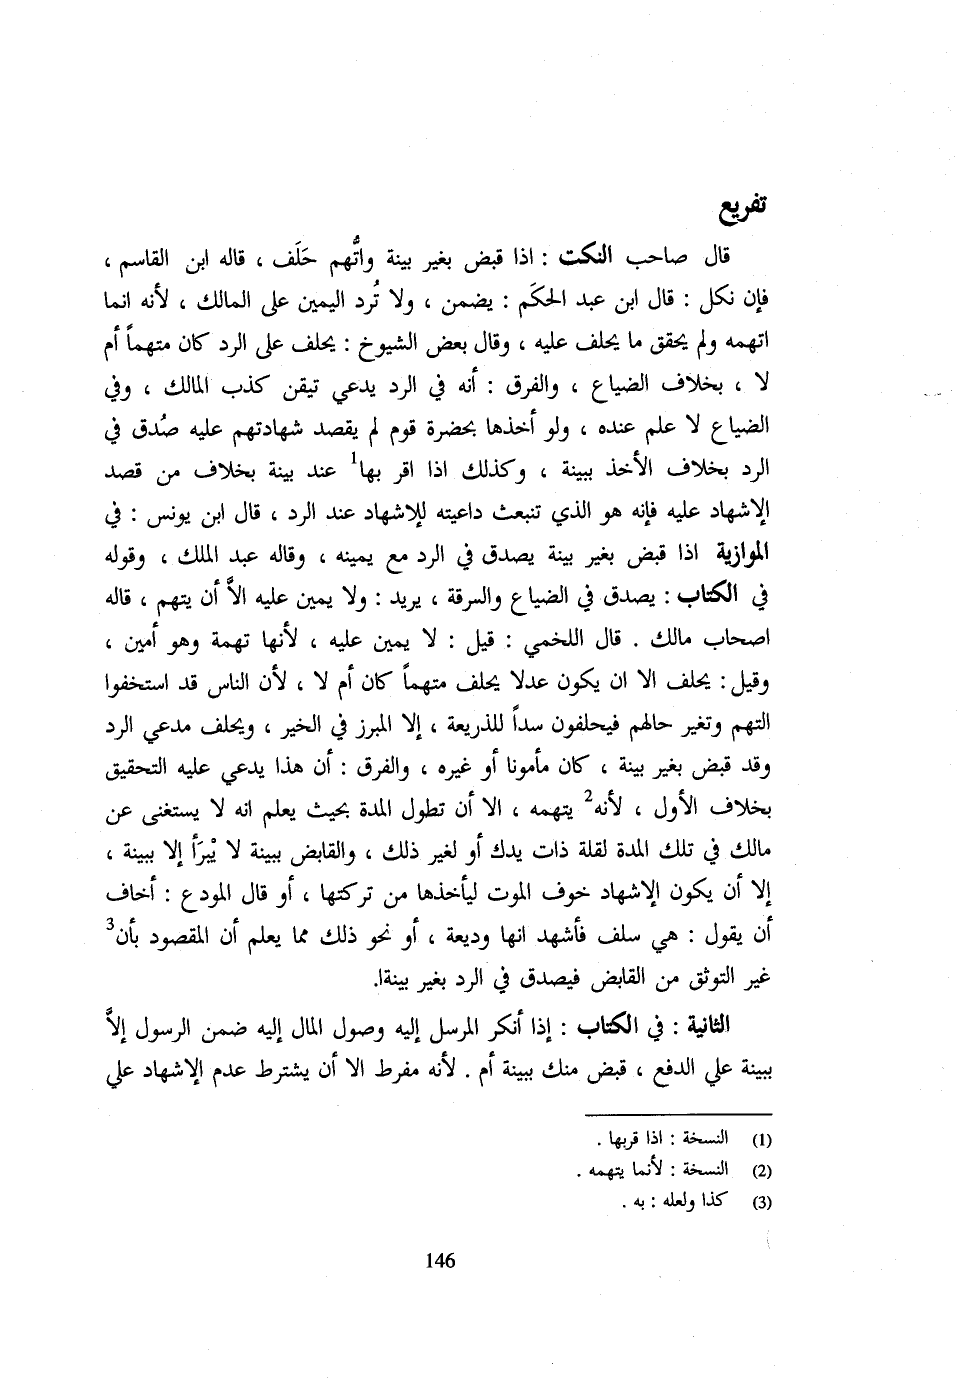 تفريع
قال صاحب النكت : اذا قبض بغير بينة واتُّهم حَلَف ، قاله ابن القاسم ،
فإن نكل : قال ابن عبد الحكَم : يضمن ، ولا تُرد اليمين على المالك ، لأنه انما
اتهمه ولم يحقق ما يحلف عليه ، وقال بعض الشيوخ : يحلف على الرد كان متهماً أم
لا ، بخلاف الضياع ، والفرق : أنه في الرد يدعي تيقن كذب المالك ، وفي
الضياع لا علم عنده ، ولو أخذها بحضرة قوم لم يقصد شهادتهم عليه صُدق في
الرد بخلاف الأخذ ببينة ، وكذلك اذا اقر بها1 عند بينة بخلاف من قصد
الإشهاد عليه فإنه هو الذي تنبعث داعيته للإشهاد عند الرد ، قال ابن يونس : في
الموازية اذا قبض بغير بينة يصدق في الرد مع يمينه ، وقاله عبد الملك ، وقوله
في الكتاب : يصدق في الضياع والسرقة ، يريد : ولا يمين عليه الاَّ أن يتهم ، قاله
اصحاب مالك . قال اللخمي : قيل : لا يمين عليه ، لأنها تهمة وهو أمين ،
وقيل : يحلف الا ان يكون عدلا يحلف متهماً كان أم لا ، لأن الناس قد استخفوا
التهم وتغير حالهم فيحلفون سداً للذريعة ، إلا المبرز في الخير ، ويحلف مدعي الرد
وقد قبض بغير بينة ، كان مأمونا أو غيره ، والفرق : أن هذا يدعي عليه التحقيق
بخلاف الأول ، لأنه2 يتهمه ، الا أن تطول المدة بحيث يعلم انه لا يستغنى عن
مالك في تلك المدة لقلة ذات يدك أو لغير ذلك ، والقابض ببينة لا يْبرَأ إلا ببينة ،
إلا أن يكون الإشهاد خوف الموت ليأخذها من تركتها ، أو قال المودع : أخاف
أن يقول : هي سلف فأشهد انها وديعة ، أو نحو ذلك مما يعلم أن المقصود بأن3
غير التوثق من القابض فيصدق في الرد بغير بينةا.
الثانية : في الكتاب : إذا أنكر المرسل إليه وصول المال إليه ضمن الرسول إلاَّ
ببينة علي الدفع ، قبض منك ببينة أم . لأنه مفرط الا أن يشترط عدم الإشهاد علي
(1) النسخة : اذا قربها .
(2) النسخة : لأنما يتهمه .
(3) كذا ولعله : به .
146